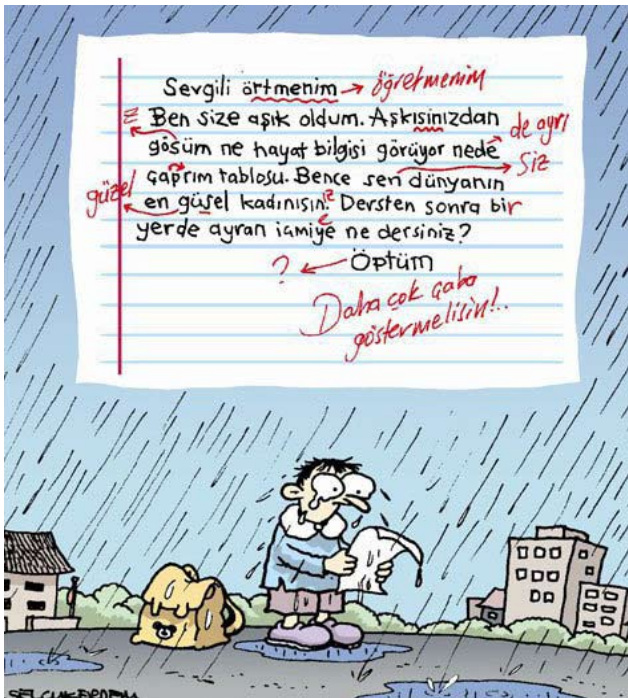 Sevgili örtmenim → öğretmenim
Ben size aşık oldum. Aşkısinızdan
gösüm ne hayat bilgisi görüyor nede de ayrı
çaprım tablosu. Bence sen dünyanın siz
güzel en güsel kadınısın. iz Dersten sonra bir
yerde ayran iamiye ne dersiniz?
? ← Öptüm
Daha çok çaba
göstermelisin!..
SELÇUK ERDEM